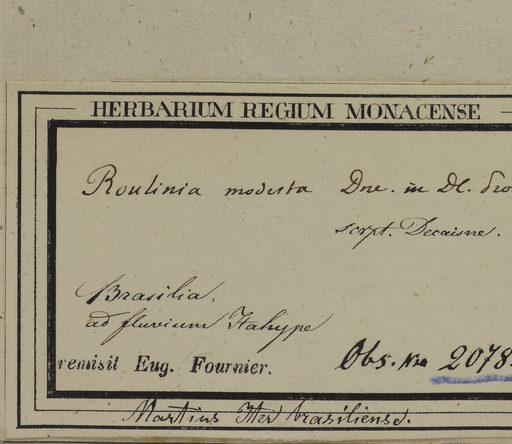 HERBARIUM REGIUM MONACENSE
Roulinia modesta Dne. in DC. Pro
scrpt. Decaisne.
Brasilia,
ad fluvium Itahype
remisit Eug. Fournier. Obs. Nro 2078.
Martius Iter brasiliense.